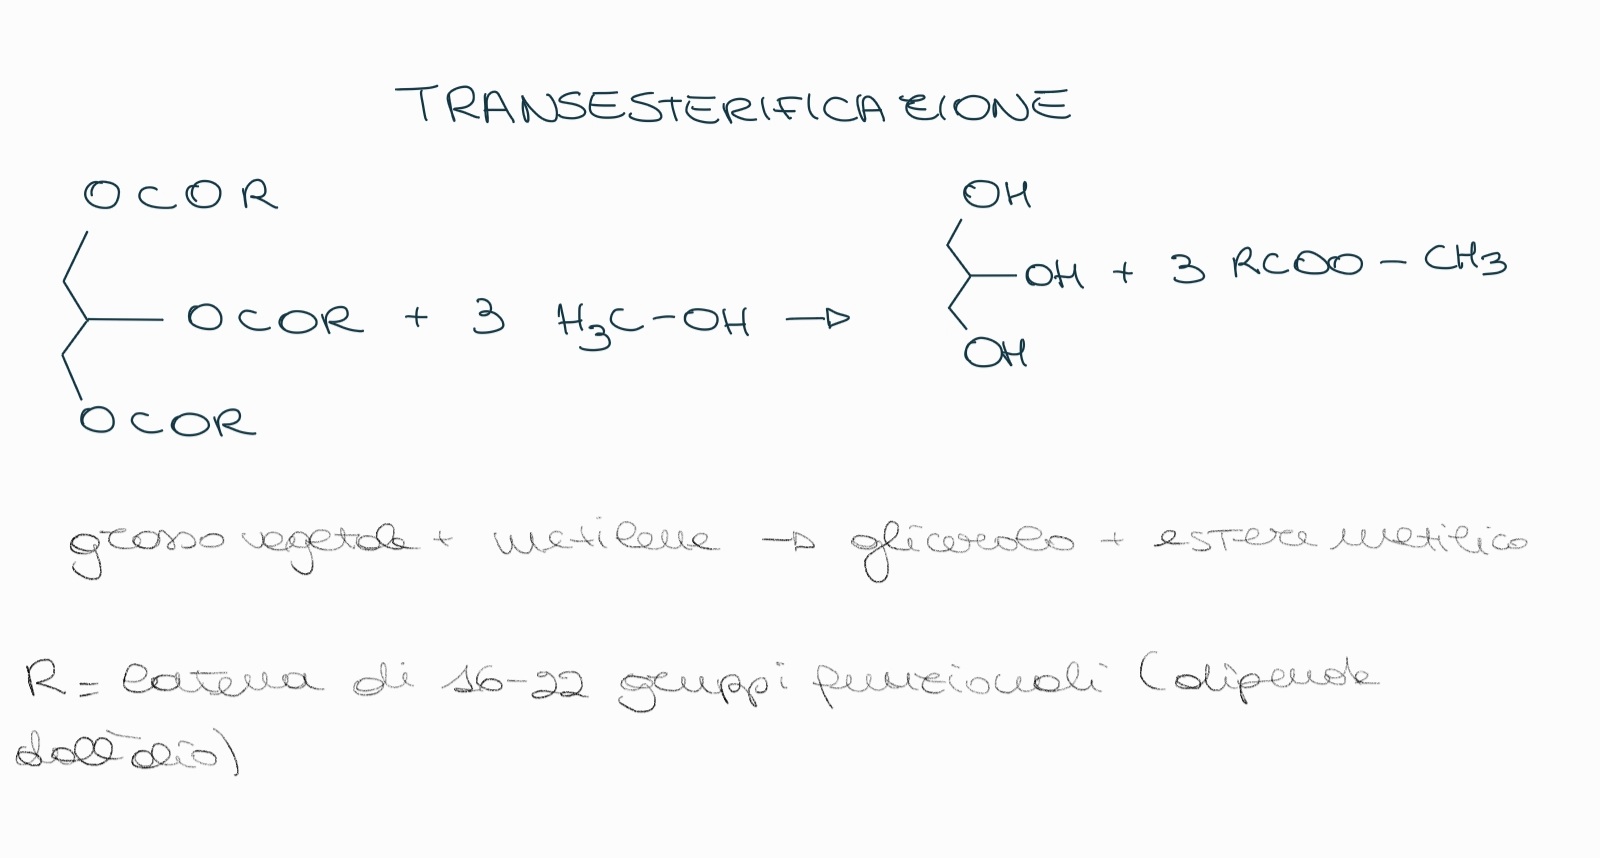 TRANSESTERIFICAZIONE
OCOR
OH
OCOR + 3 H3C-OH → OH + 3 RCOO - CH3
OH
OCOR
grasso vegetale + metilene → glicerolo + estere metilico
R = catena di 16-22 gruppi funzionali (dipende
dall'olio)